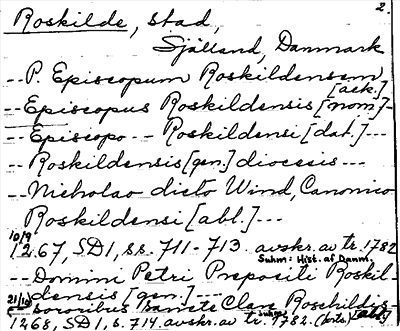 2.
Roskilde, stad,
Sjælland, Danmark
-- P. Episcopum Roskildensem
[ack.]
-- Episcopus Roskildensis [nom]-
-- Episcopo -- Roskildensi [dat.]---
-- Roskildensis [gen.] diocesis ---
-- Nicholao dicto Wind, Canonico
Roskildensi [abl.]---
10/9
1267, SD1, ss. 711-713. avskr. av tr. 1782
Suhm: Hist. af Danm.
-- Domini Petri Prepositi Roskil-
densis [gen.]---
21/10
sororibus sancte Clare Roschildis
1268, SD1, s. 714. avskr. av tr. 1782. (forts.)